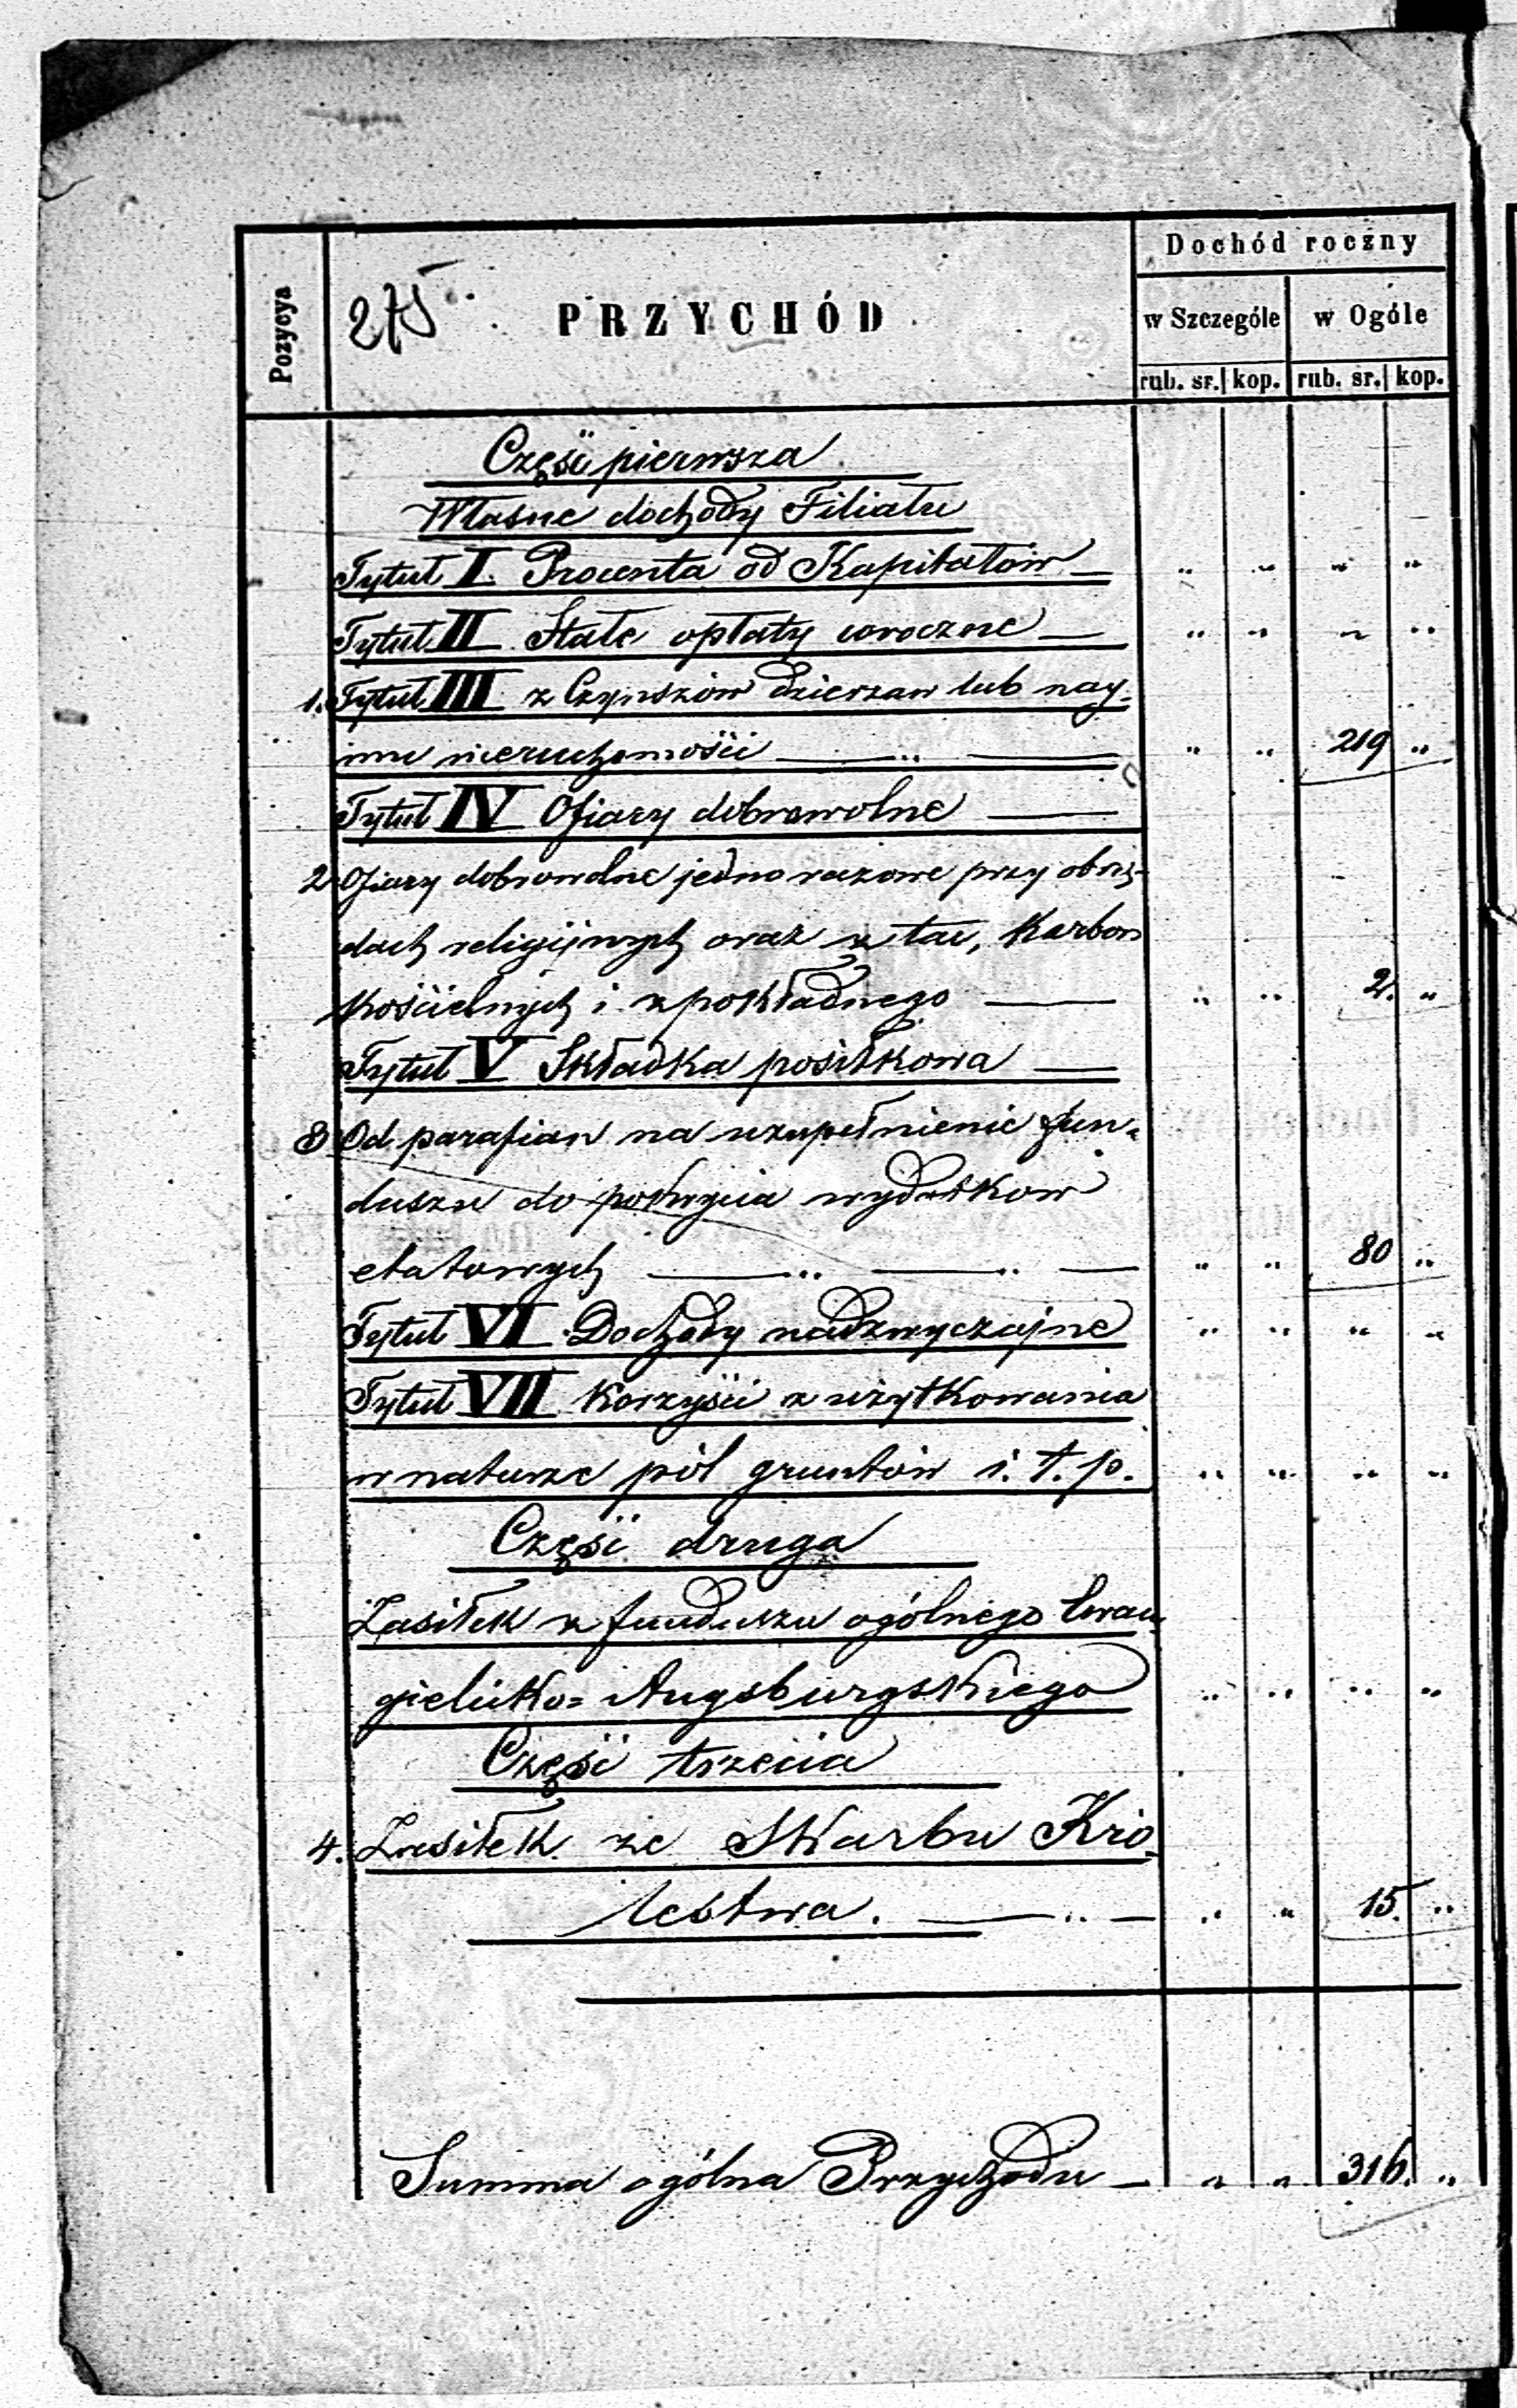 Dochód roczny
Pozycya 275 PRZYCHÓD w Szczególe w Ogóle
rub. sr. kop. rub. sr. kop.
Część pierwsza
Własne dochody Filiału
Tytuł I. Procenta od Kapitałów — " " " "
Tytuł II Stałe opłaty coroczne — " " " "
1. Tytuł III z Czynszów dzierżaw lub nay-
mu nieruchomości — " — " " 219 "
Tytuł IV Ofiary dobrowolne —
2. Ofiary dobrowolne jedno razowe przy obrzę-
dach religijnych oraz z tac, Karbon
Kościelnych i z pokładnego — " " 2. "
Tytuł V Składka posiłkowa —
3 Od parafian na uzupełnienie fun-
duszu do pokrycia wydatkow
etatowych — " — " — " " 80 "
Tytuł VI Dochody nadzwyczajne " " " "
Tytuł VII Korzyści z użytkowania
w naturze pól gruntów i. t. p. " " " "
Część druga
Zasiłek z funduszu ogólnego Ewan-
gielicko= Augsburgskiego " " " "
Część trzecia
4. Zasiłek ze Skarbu Kró-
lestwa. — " — " " 15. "
Summa ogólna Przychodu — " " 316. "